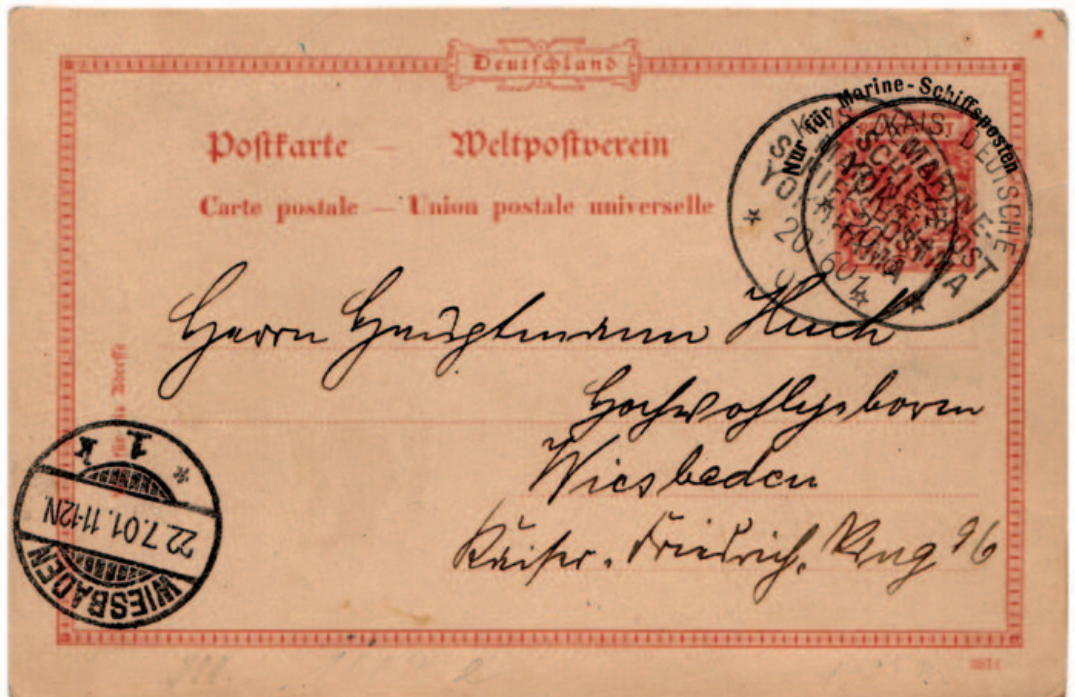 Deutschland
Postkarte — Weltpostverein
Carte postale — Union postale universelle
Nur für Marine-Schiffsposten
KAIS. DEUTSCHE
MARINE-
SCHIFFSPOST
YOKOHAMA
20 6 01
Herrn Hauptmann Huch
Hochwohlgeboren
Wiesbaden
Kaiser-Friedrich-Ring 96
WIESBADEN
22.7.01.11-12N.
* 1 k